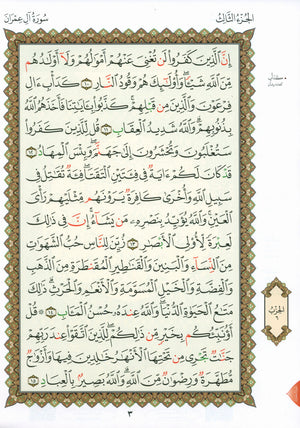 الجزء الثالث
سورة آل عمران
إِنَّ الَّذِينَ كَفَرُوا لَن تُغْنِيَ عَنْهُمْ أَمْوَالُهُمْ وَلَا أَوْلَادُهُم
مِّنَ اللَّهِ شَيْئًا وَأُولَٰئِكَ هُمْ وَقُودُ النَّارِ ١٠ كَدَأْبِ آلِ
فِرْعَوْنَ وَالَّذِينَ مِن قَبْلِهِمْ كَذَّبُوا بِآيَاتِنَا فَأَخَذَهُمُ اللَّهُ
بِذُنُوبِهِمْ وَاللَّهُ شَدِيدُ الْعِقَابِ ١١ قُل لِّلَّذِينَ كَفَرُوا
سَتُغْلَبُونَ وَتُحْشَرُونَ إِلَىٰ جَهَنَّمَ وَبِئْسَ الْمِهَادُ ١٢
قَدْ كَانَ لَكُمْ آيَةٌ فِي فِئَتَيْنِ الْتَقَتَا فِئَةٌ تُقَاتِلُ فِي
سَبِيلِ اللَّهِ وَأُخْرَىٰ كَافِرَةٌ يَرَوْنَهُم مِّثْلَيْهِمْ رَأْيَ
الْعَيْنِ وَاللَّهُ يُؤَيِّدُ بِنَصْرِهِ مَن يَشَاءُ إِنَّ فِي ذَٰلِكَ
لَعِبْرَةً لِّأُولِي الْأَبْصَارِ ١٣ زُيِّنَ لِلنَّاسِ حُبُّ الشَّهَوَاتِ
مِنَ النِّسَاءِ وَالْبَنِينَ وَالْقَنَاطِيرِ الْمُقَنطَرَةِ مِنَ الذَّهَبِ
وَالْفِضَّةِ وَالْخَيْلِ الْمُسَوَّمَةِ وَالْأَنْعَامِ وَالْحَرْثِ ذَٰلِكَ
مَتَاعُ الْحَيَاةِ الدُّنْيَا وَاللَّهُ عِندَهُ حُسْنُ الْمَآبِ ١٤ قُلْ
أَؤُنَبِّئُكُم بِخَيْرٍ مِّن ذَٰلِكُمْ لِلَّذِينَ اتَّقَوْا عِندَ رَبِّهِمْ
جَنَّاتٌ تَجْرِي مِن تَحْتِهَا الْأَنْهَارُ خَالِدِينَ فِيهَا وَأَزْوَاجٌ
مُّطَهَّرَةٌ وَرِضْوَانٌ مِّنَ اللَّهِ وَاللَّهُ بَصِيرٌ بِالْعِبَادِ ١٥
٣